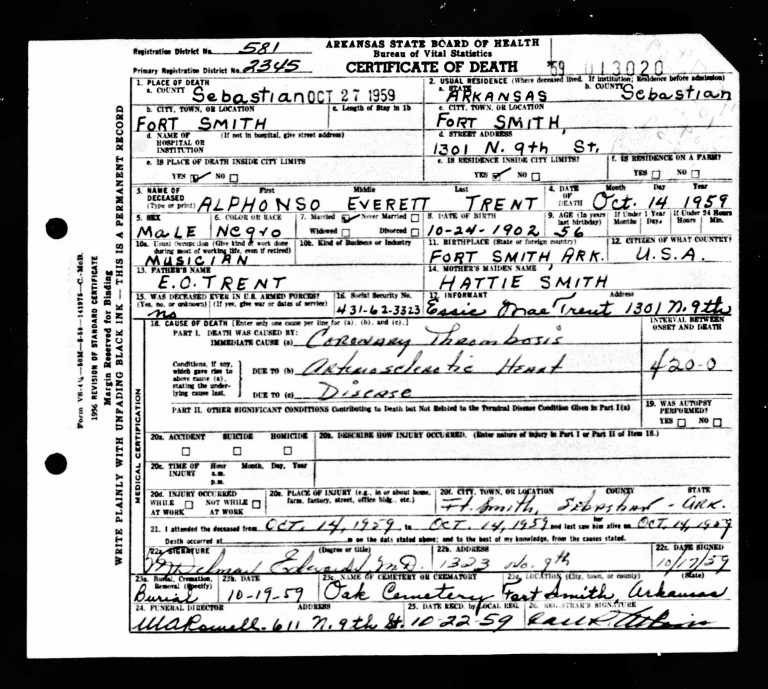 Registration District No. 581
ARKANSAS STATE BOARD OF HEALTH
Bureau of Vital Statistics
Primary Registration District No. 2345
CERTIFICATE OF DEATH
59 013020
1. PLACE OF DEATH
a. COUNTY Sebastian OCT 27 1959
2. USUAL RESIDENCE (Where deceased lived. If institution: Residence before admission)
a. STATE ARKANSAS b. COUNTY Sebastian
b. CITY, TOWN, OR LOCATION c. Length of Stay in 1b
FORT SMITH
c. CITY, TOWN, OR LOCATION
FORT SMITH,
d. NAME OF HOSPITAL OR INSTITUTION (If not in hospital, give street address)
d. STREET ADDRESS
1301 N. 9th St.
e. IS PLACE OF DEATH INSIDE CITY LIMITS
YES NO
e. IS RESIDENCE INSIDE CITY LIMITS?
YES NO
f. IS RESIDENCE ON A FARM?
YES NO
3. NAME OF DECEASED (Type or print) First Middle Last
ALPHONSO EVERETT TRENT
4. DATE OF DEATH Month Day Year
Oct. 14 1959
5. SEX
MaLE
6. COLOR OR RACE
Negro
7. Married Never Married
Widowed Divorced
8. DATE OF BIRTH
10-24-1902
9. AGE (In years last birthday) If Under 1 Year Months Days If Under 24 Hours Hours Min.
56
10a. Usual Occupation (Give kind of work done during most of working life, even if retired)
MUSICIAN
10b. Kind of Business or Industry
11. BIRTHPLACE (State or foreign country)
FORT SMITH ARK.
12. CITIZEN OF WHAT COUNTRY?
U.S.A.
13. FATHER'S NAME
E.O. TRENT
14. MOTHER'S MAIDEN NAME
HATTIE SMITH
15. WAS DECEASED EVER IN U.S. ARMED FORCES?
(Yes, no, or unknown) (If yes, give war or dates of service)
no
16. Social Security No.
431-62-3323
17. INFORMANT Address
Essie Mae Trent 1301 N. 9th
18. CAUSE OF DEATH [Enter only one cause per line for (a), (b), and (c).]
INTERVAL BETWEEN ONSET AND DEATH
PART I. DEATH WAS CAUSED BY:
IMMEDIATE CAUSE (a) Coronary Thrombosis
Conditions, if any, which gave rise to above cause (a), stating the underlying cause last.
DUE TO (b) Arteriosclerotic Heart
420-0
DUE TO (c) Disease
PART II. OTHER SIGNIFICANT CONDITIONS Contributing to Death but Not Related to the Terminal Disease Condition Given in Part I(a)
19. WAS AUTOPSY PERFORMED?
YES NO
20a. ACCIDENT SUICIDE HOMICIDE
20b. DESCRIBE HOW INJURY OCCURRED. (Enter nature of injury in Part I or Part II of Item 18.)
20c. TIME OF INJURY Hour a.m. p.m. Month, Day, Year
20d. INJURY OCCURRED
WHILE AT WORK NOT WHILE AT WORK
20e. PLACE OF INJURY (e.g., in or about home, farm, factory, street, office bldg., etc.)
20f. CITY, TOWN, OR LOCATION COUNTY STATE
Ft. Smith, Sebastian - Ark.
21. I attended the deceased from OCT. 14, 1959 to OCT. 14, 1959 and last saw him her alive on OCT. 14, 1959
Death occurred at m on the date stated above; and to the best of my knowledge, from the causes stated.
22a. SIGNATURE (Degree or title)
M.D.
22b. ADDRESS
1323 No. 9th
22c. DATE SIGNED
10/17/59
23a. Burial, Cremation, Removal (Specify)
Burial
23b. DATE
10-19-59
23c. NAME OF CEMETERY OR CREMATORY
Oak Cemetery
23d. LOCATION (City, town, or county) (State)
Fort Smith, Arkansas
24. FUNERAL DIRECTOR ADDRESS
611 N. 9th St.
25. DATE RECD. BY LOCAL REG.
10-22-59
26. REGISTRAR'S SIGNATURE
1956 REVISION OF STANDARD CERTIFICATE
Margin Reserved for Binding
WRITE PLAINLY WITH UNFADING BLACK INK — THIS IS A PERMANENT RECORD
MEDICAL CERTIFICATION